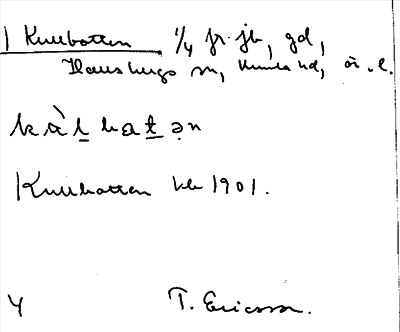 Kullbotten 1/4 fr. jb, gd,
Hansbergs sn, Kumla hd, ö. l.
kàl̠batə̣n
Kullbotten kb 1901.
4 T. Ericsson.